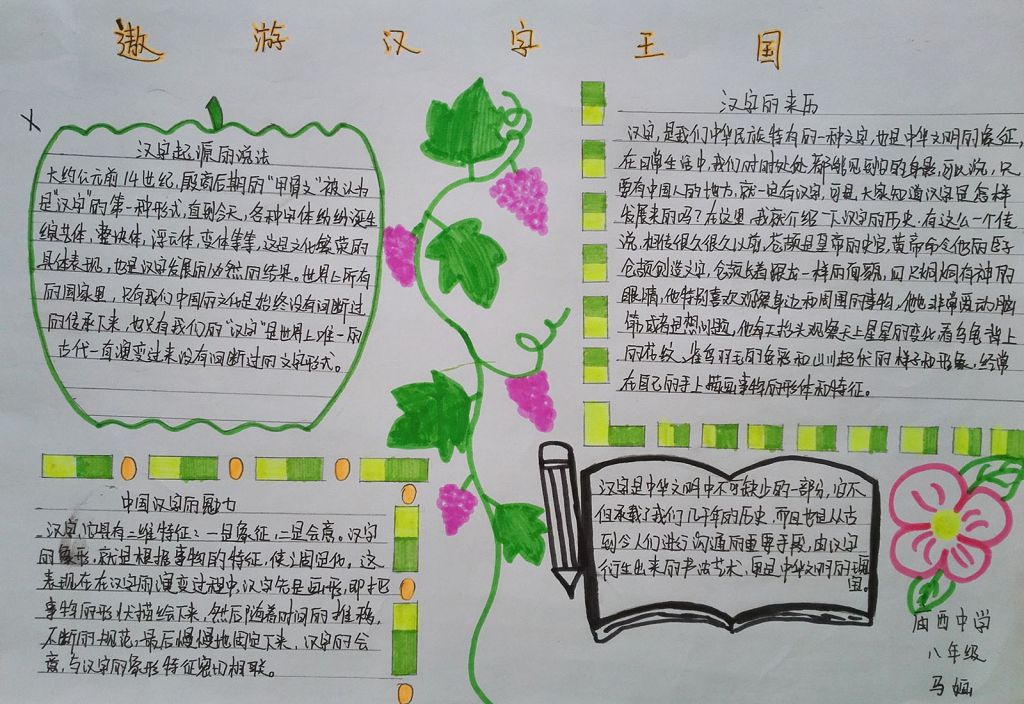 遨游汉字王国
汉字起源的说法
大约公元前14世纪,殷商后期的"甲骨文"被认为
是"汉字"的第一种形式,直到今天,各种字体纷纷诞生
综艺体,整块体,浮云体,变体等等,这是文化繁荣的
具体表现,也是汉字发展的必然的结果。世界上所有
的国家里,只有我们中国的文化是始终没有间断过
的传承下来,也只有我们的"汉字"是世界上唯一的
古代一直演变过来没有间断过的文字形式。
汉字的来历
汉字,是我们中华民族特有的一种文字,也是中华文明的象征,
在日常生活中,我们时时处处都能见到它的身影,可以说,只
要有中国人的地方,就一定有汉字,可是,大家知道汉字是怎样
发展来的吗?在这里,我就介绍一下汉字的历史.有这么一个传
说,相传很久很久以前,苍颉是皇帝的史官,黄帝命令他的臣子
仓颉创造文字,仓颉长着跟龙一样的面貌,四只炯炯有神的
眼睛,他特别喜欢观察身边和周围的事物,他也非常爱动脑
筋或者思想问题,他有天抬头观察天上星星的变化看乌龟背上
的花纹、雀鸟羽毛的色彩和山川起伏的样子和形象,经常
在自己的手上描画事物的形体和特征。
中国汉字的魅力
汉字它具有二维特征:一是象征,二是会意。汉字
的象形,就是根据事物的特征,使之固定化,这
表现在在汉字的演变过程中,汉字先是画形,即把
事物的形状描绘下来,然后随着时间的推移,
不断的规范,最后慢慢地固定下来,汉字的会
意,与汉字的象形特征密切相联。
汉字是中华文明中不可缺少的一部分,它不
但承载了我们几千年的历史,而且也是从古
到今人们进行沟通的重要手段,由汉字
衍生出来的书法艺术,更是中华文明的瑰
宝。
西中学
八年级
马